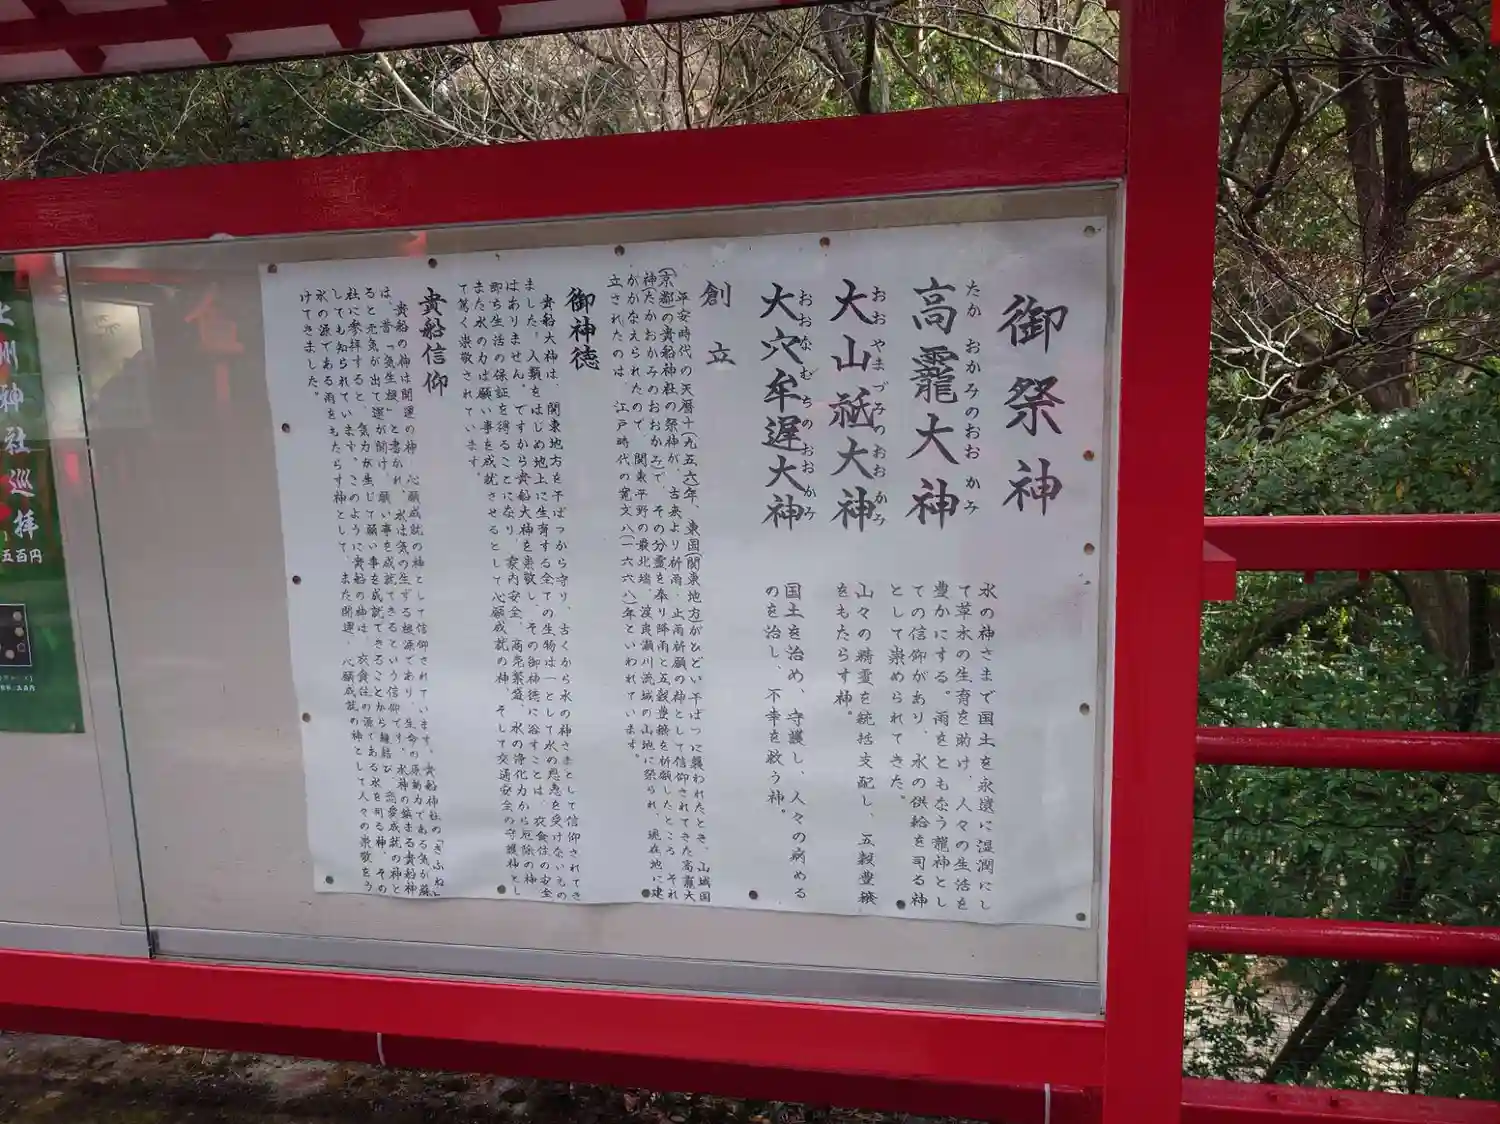 御祭神
たか おかみのおお かみ
高龗大神
水の神さまで国土を永遠に湿潤にし
て草木の生育を助け、人々の生活を
豊かにする。雨をともなう龍神とし
ての信仰があり、水の供給を司る神
として崇められてきた。
おおやまづみのおおかみ
大山祗大神
山々の精霊を統括支配し、五穀豊穣
をもたらす神。
おおなむちのおおかみ
大穴牟遅大神
国土を治め、守護し、人々の病める
のを治し、不幸を救う神。
創立
平安時代の天暦十(九五六)年、東国(関東地方)がひどい干ばつに襲われたとき、山城国
(京都)の貴船神社の祭神が、古来より祈雨、止雨祈願の神として信仰されてきた高龗大
神(たかおかみのおおかみ)で、その分霊を奉り降雨と五穀豊穣を祈願したところ、それ
がかなえられたので、関東平野の最北端、渡良瀬川流域の山地に祭られ、現在地に建
立されたのは、江戸時代の寛文八(一六六八)年といわれています。
御神徳
貴船大神は、関東地方を干ばつから守り、古くから水の神さまとして信仰されてき
ました。人類をはじめ地上に生育する全ての生物は一として水の恩恵を受けないもの
はありません。ですから貴船大神を崇敬し、その御神徳に浴すことは、衣食住の安全
即ち生活の保証を得ることになり、家内安全、商売繁盛、水の浄化力から厄除の神
また水の力は願い事を成就させるとして心願成就の神、そして交通安全の守護神とし
て篤く崇敬されています。
貴船信仰
貴船の神は開運の神、心願成就の神として信仰されています。貴船神社の「きふね」
は、昔「気生根」と書かれ、水は気の生ずる根源であり、生命の原動力である気が蘇
ると元気が出て運が開け、願い事を成就できるという信仰で、水神の鎮まる貴船神
社に参拝すると、気力が生じて願い事を成就できることから縁結び、恋愛成就の神と
しても知られています。このように貴船の神は、衣食住の源である水を司る神、その
水の源である雨をもたらす神として、また開運、心願成就の神として人々の崇敬をう
けてきました。
州神社巡拝
五百円